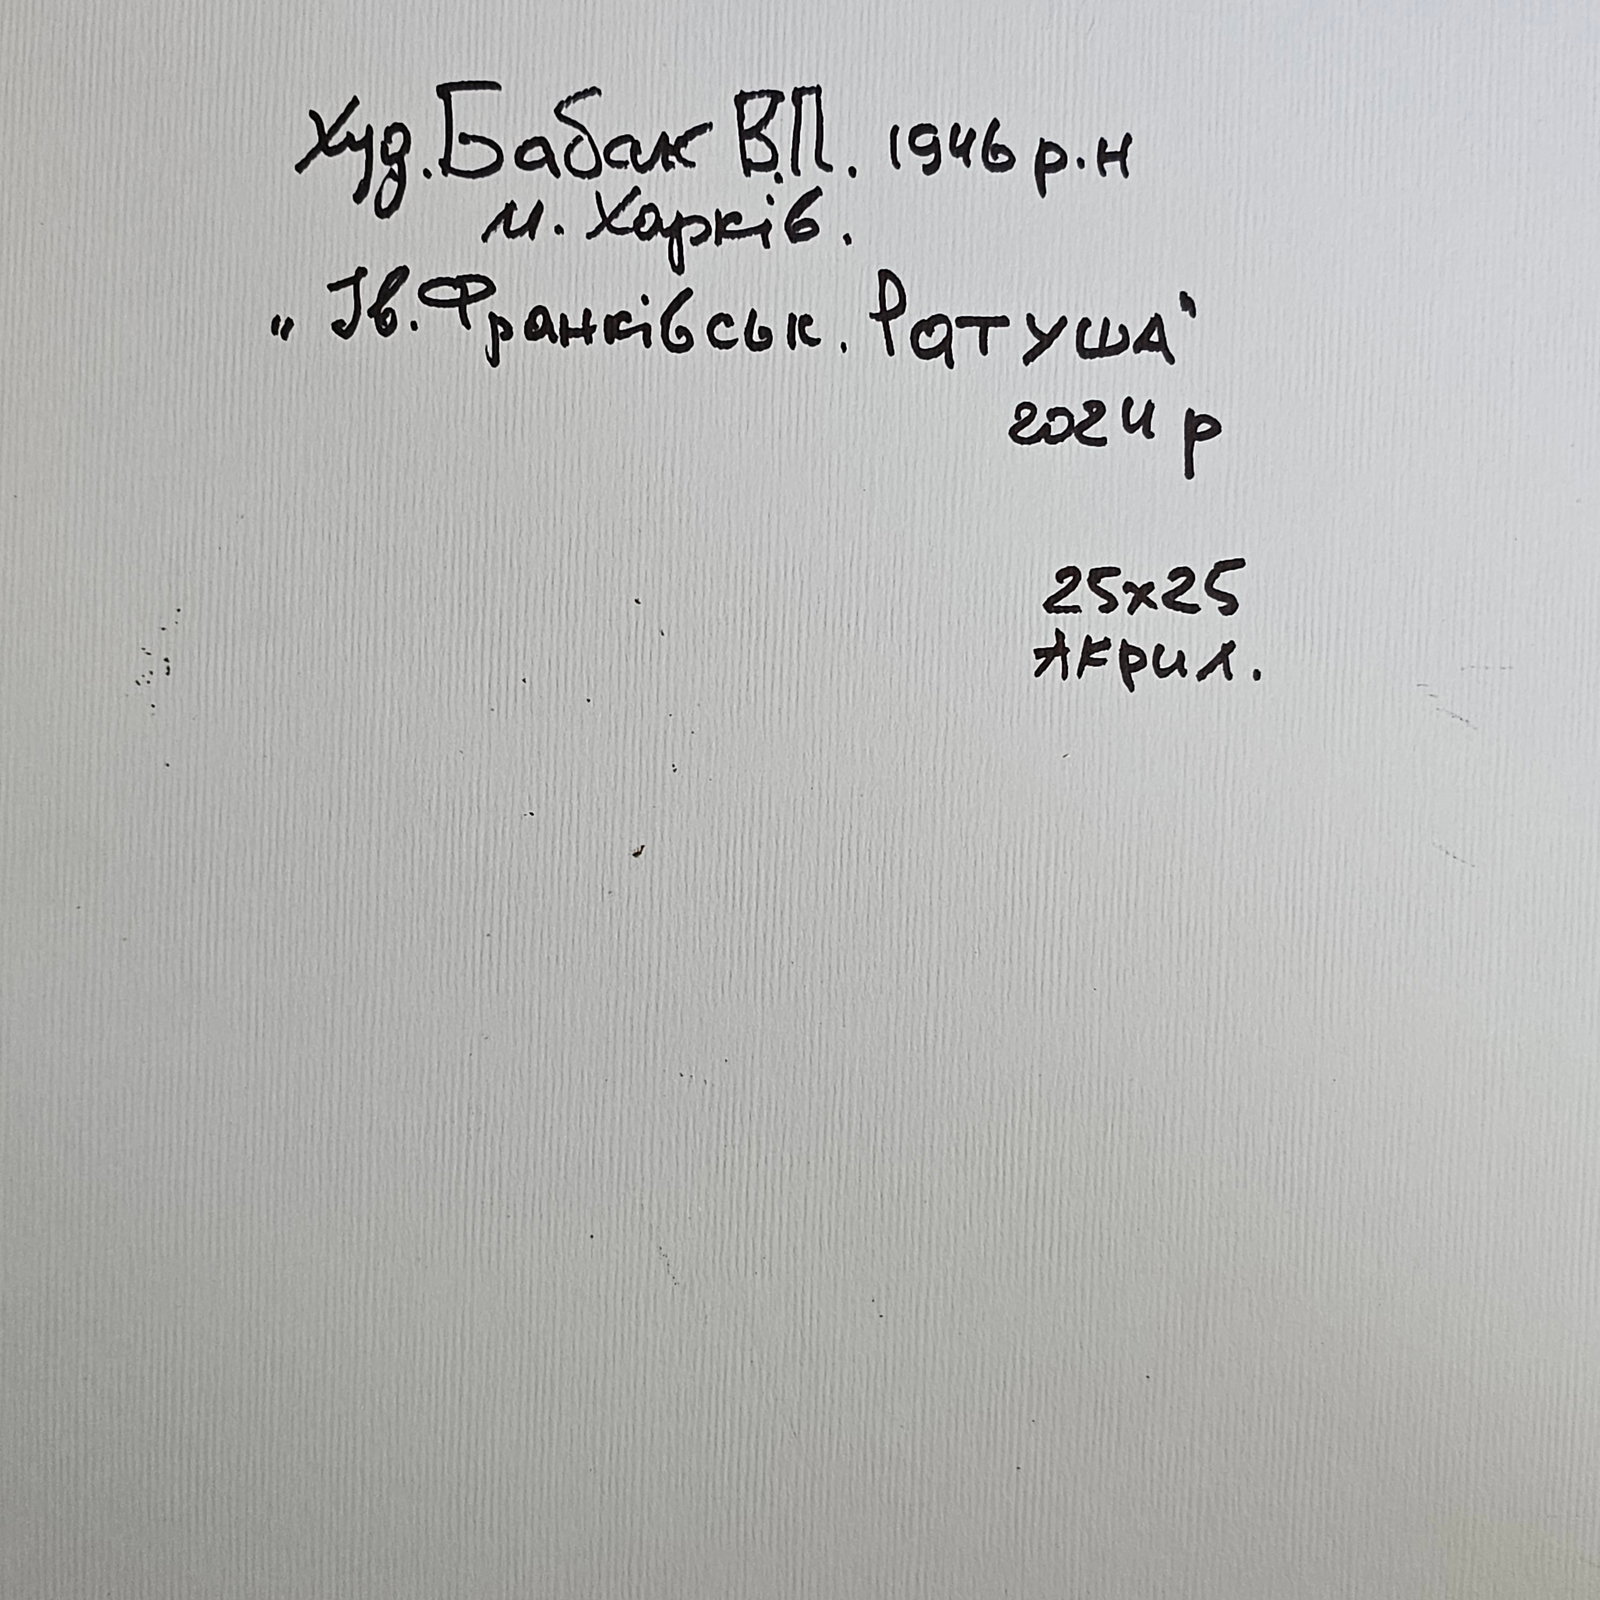 Худ. Бабак В.П. 1946 р.н
м. Харків.
„Ів. Франківськ. Ратуша"
2024 р
25х25
Акрил.